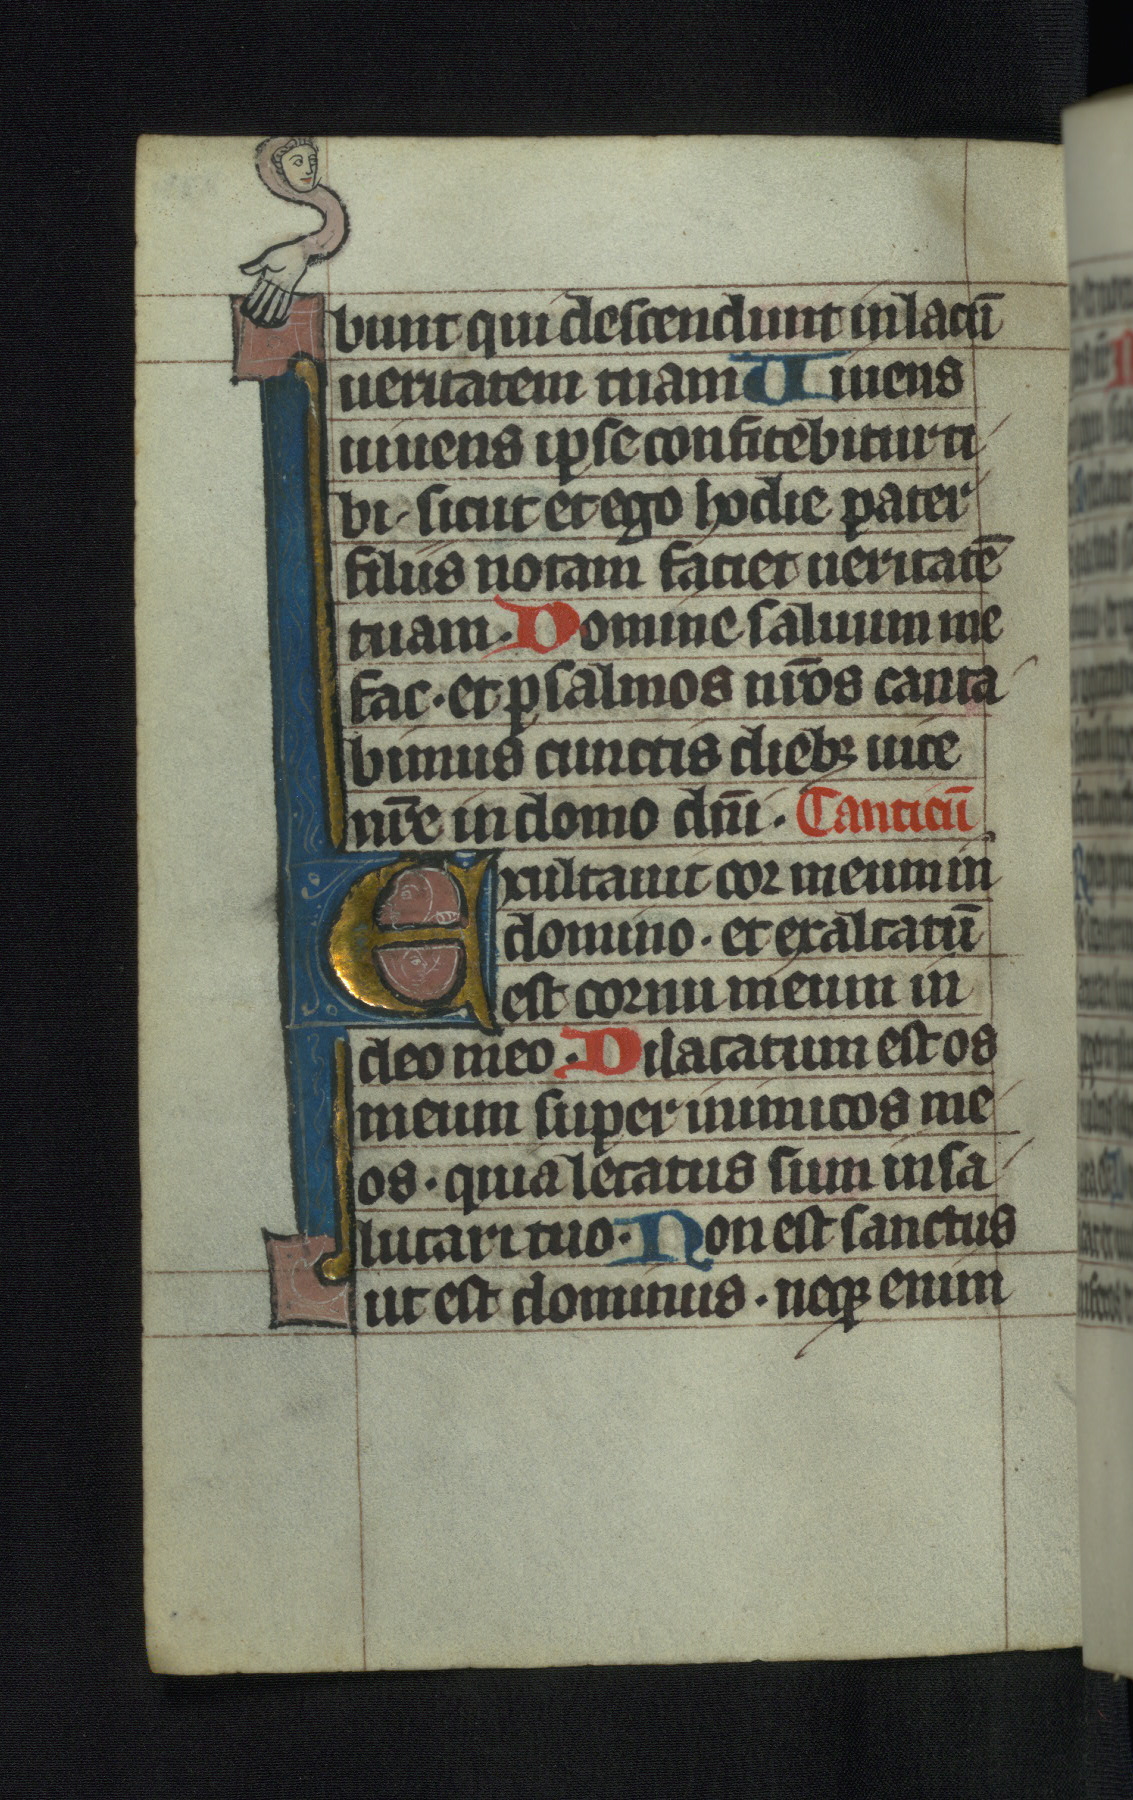 bunt qui descendunt in lacū
ueritatem tuam Uiuens
uiuens ipse confitebitur ti
bi · sicut et ego hodie pater
filiis notam faciet ueritatē
tuam · Domine saluum me
fac · et psalmos nr̄os canta
bimus cunctis diebꝫ uite
nr̄e in domo dn̄i · Canticū
Exultauit cor meum in
domino · et exaltatū
est cornu meum in
deo meo · Dilatatum est os
meum super inimicos me
os · quia letatus sum in sa
lutari tuo · Non est sanctus
ut est dominus · neqꝫ enim